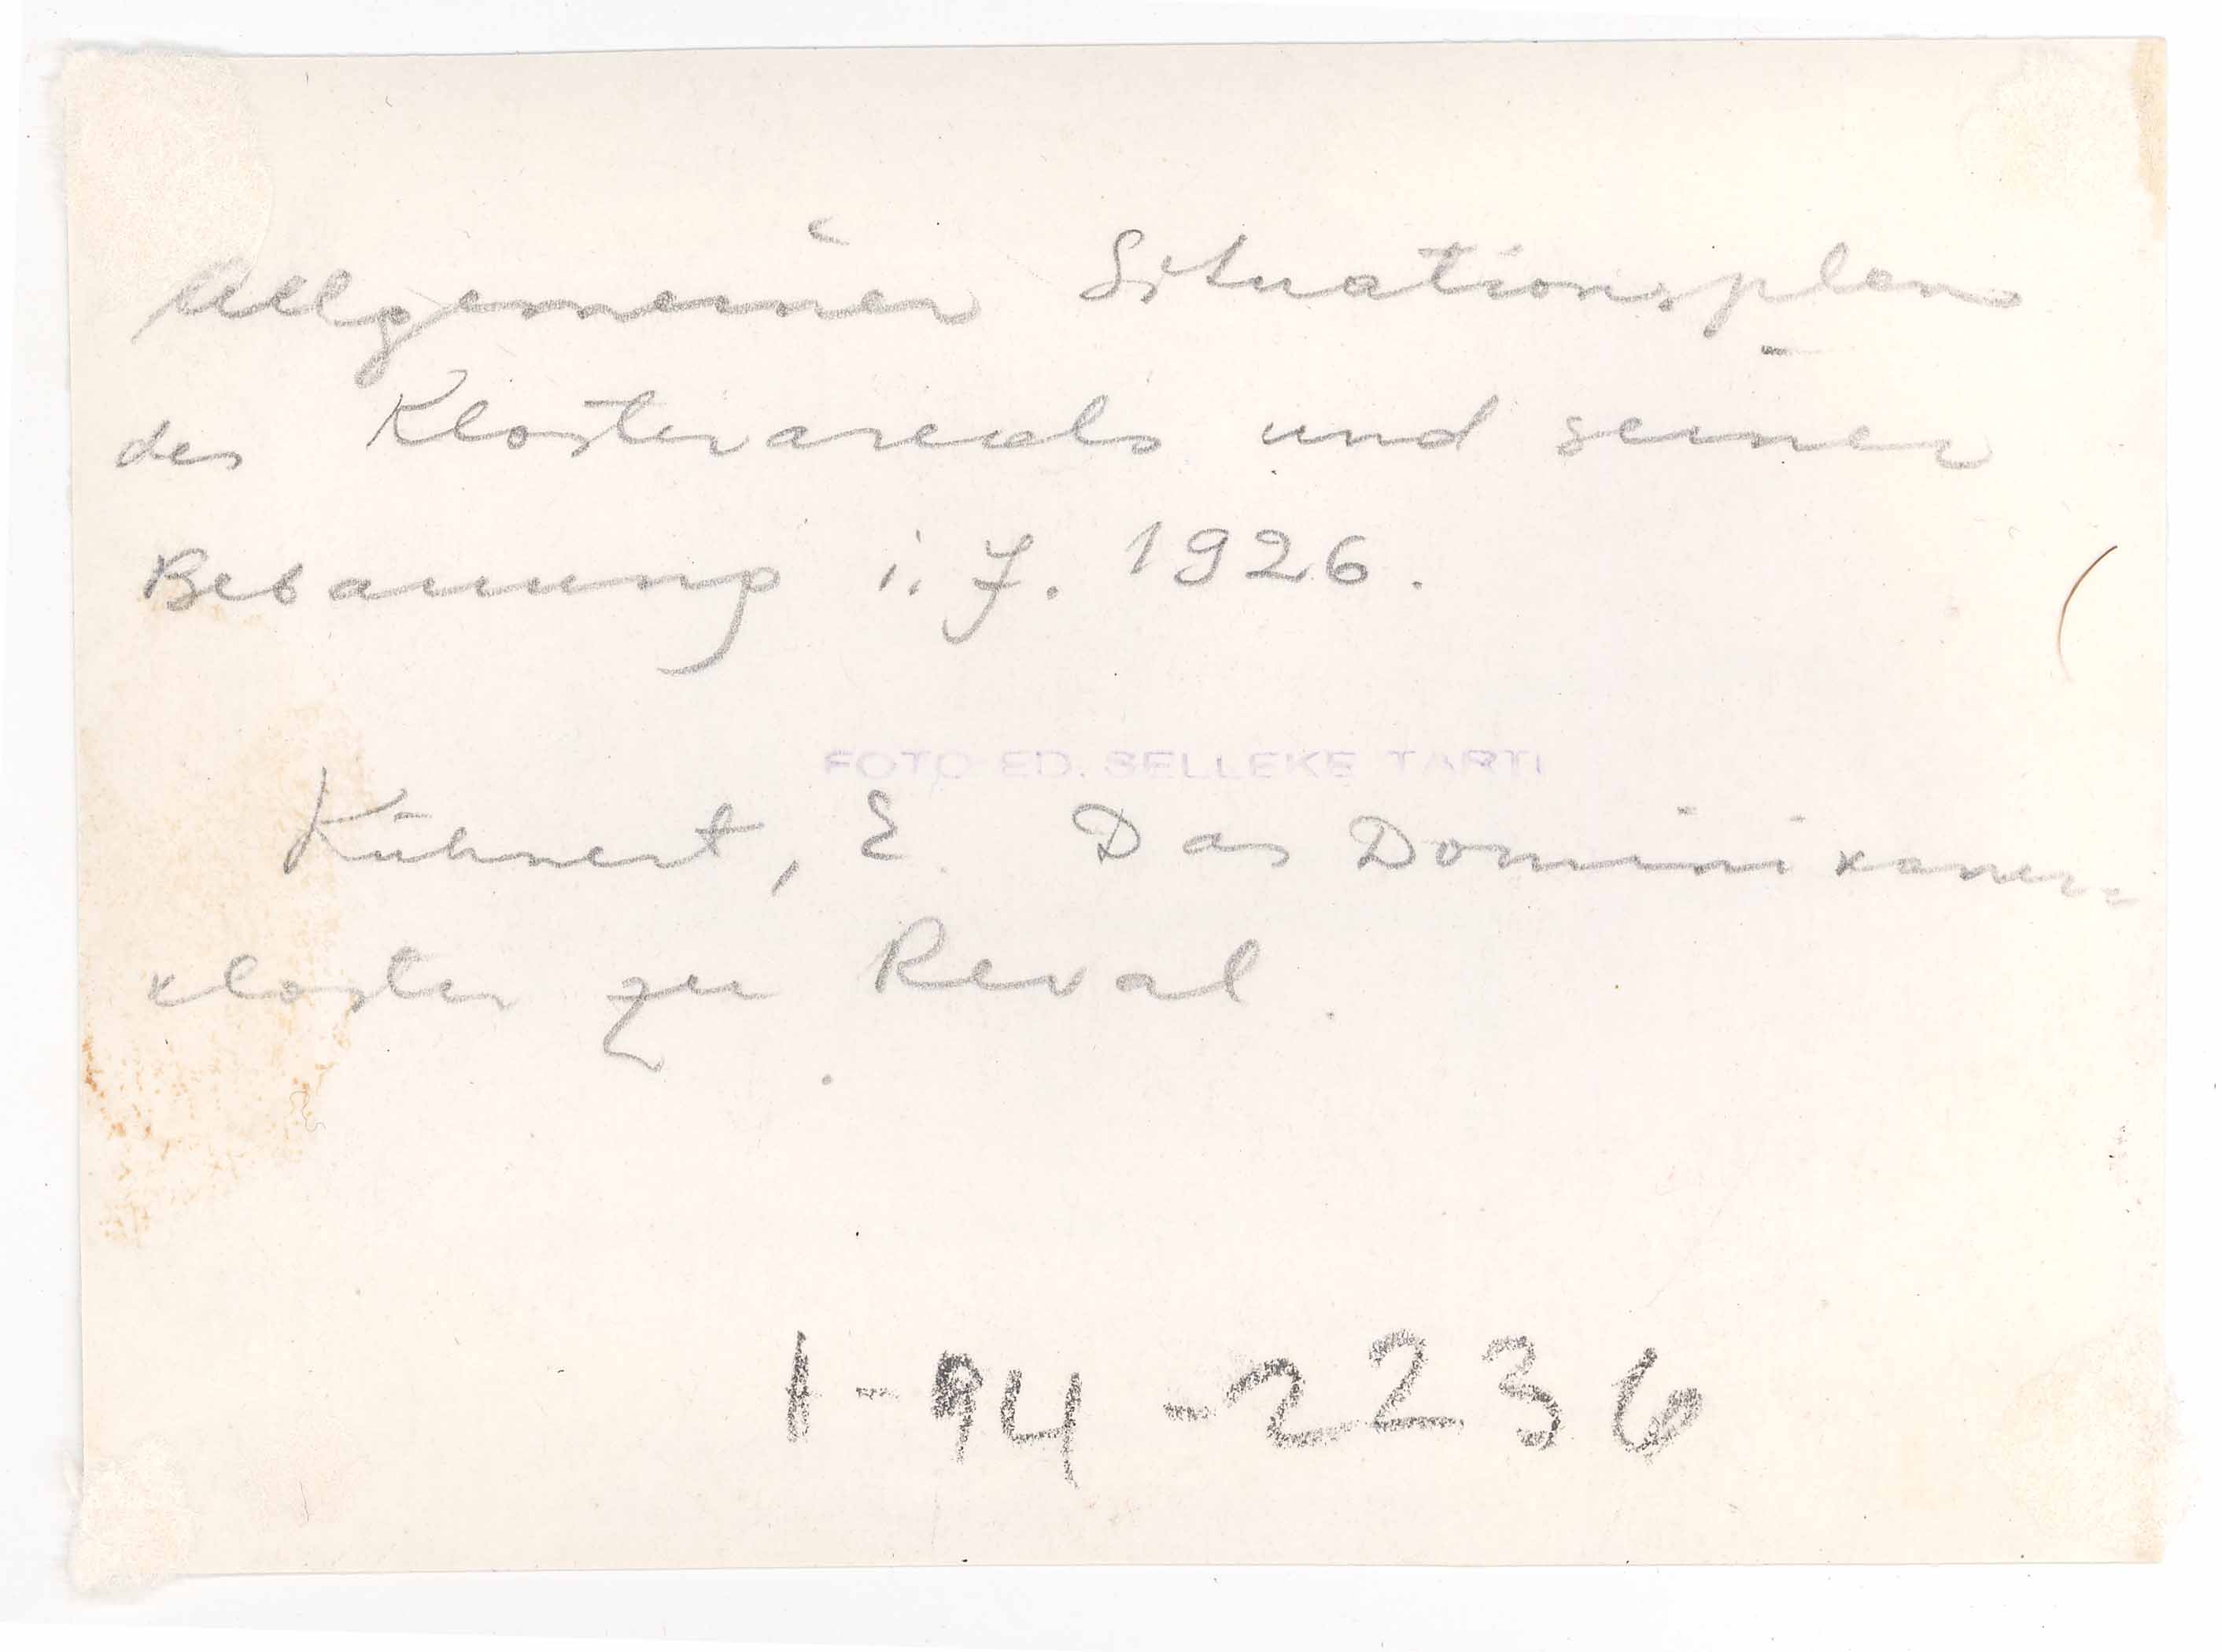 Allgemeiner Situationsplan
des Klosterareals und seiner
Bebauung i. J. 1926.
FOTO ED. SELLEKE TARTU
Kühnert, E. Das Dominikaner-
kloster zu Reval.
1-94-2236